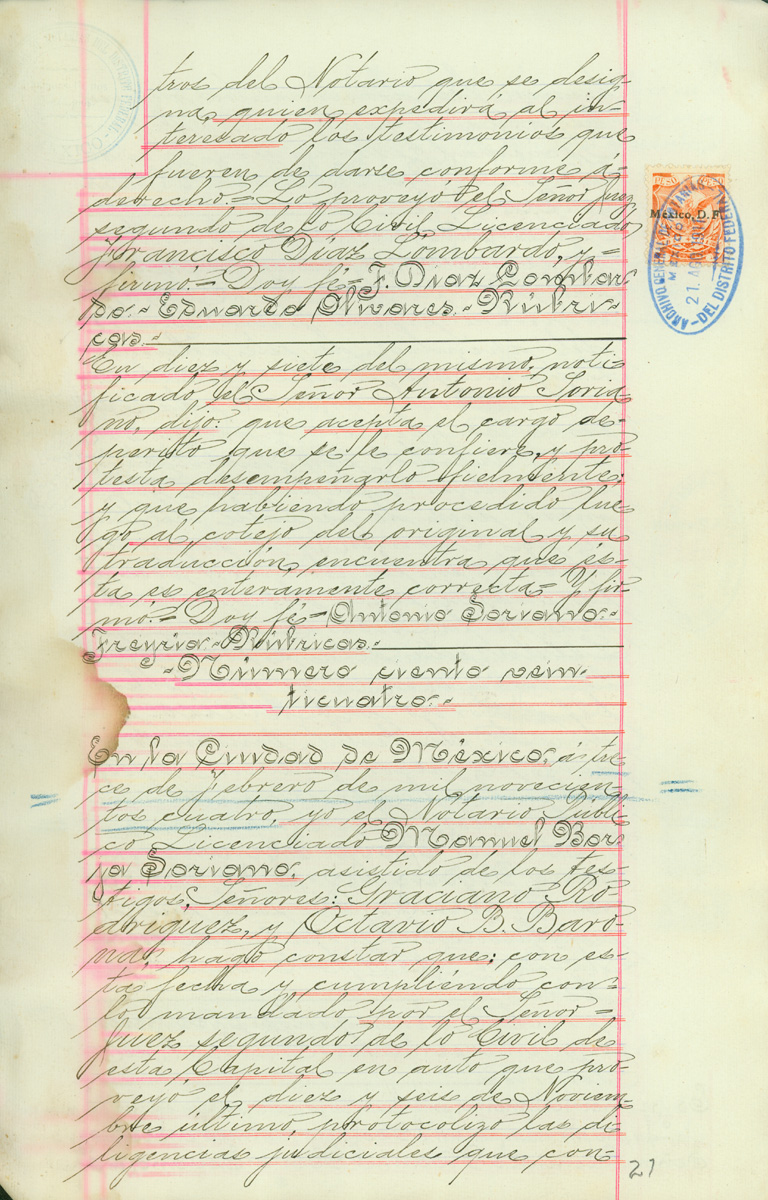 tros del Notario que se desig-
na, quien expedirá al in-
teresado los testimonios que
fueren de darse conforme a-
derecho.= Lo proveyó el Señor Juez
segundo de lo Civil Licenciado
Francisco Díaz Lombardo, y=
firmó= Doy fé= F. Díaz Lombar-
do.- Eduardo Olivares.- Rúbri-
cas.-
En diez y siete del mismo, noti-
ficado el Señor Antonio Soria
no, dijo: que acepta el cargo de-
perito que se le confiere, y pro-
testa desempeñarlo fielmente:
y que habiendo procedido lue
go al cotejo del original y su
traducción, encuentra que és-
ta es enteramente correcta= Y fir-
mó.= Doy fé= Antonio Soriano.-
Freyria.- Rúbricas.-
-Número ciento vein-
ticuatro.-
En la Ciudad de México, á tre
ce de Febrero de mil novecien-
tos cuatro, yo el Notario Públi-
co Licenciado Manuel Bor-
ja Soriano, asistido de los tes-
tigos, Señores: Graciano Ro-
driguez, y Octavio B. Baro-
na, hago constar que: con es-
ta fecha y cumpliendo con-
lo mandado por el Señor=
Juez segundo de lo Civil de
esta Capital en auto que pro-
veyó el diez y seis de Noviem-
bre último, protocolizo las di-
ligencias judiciales que con-
27
PESO PESO
México, D. F.
ARCHIVO GENERAL DE NOTARIAS
21. AGO
-DEL DISTRITO FEDERAL